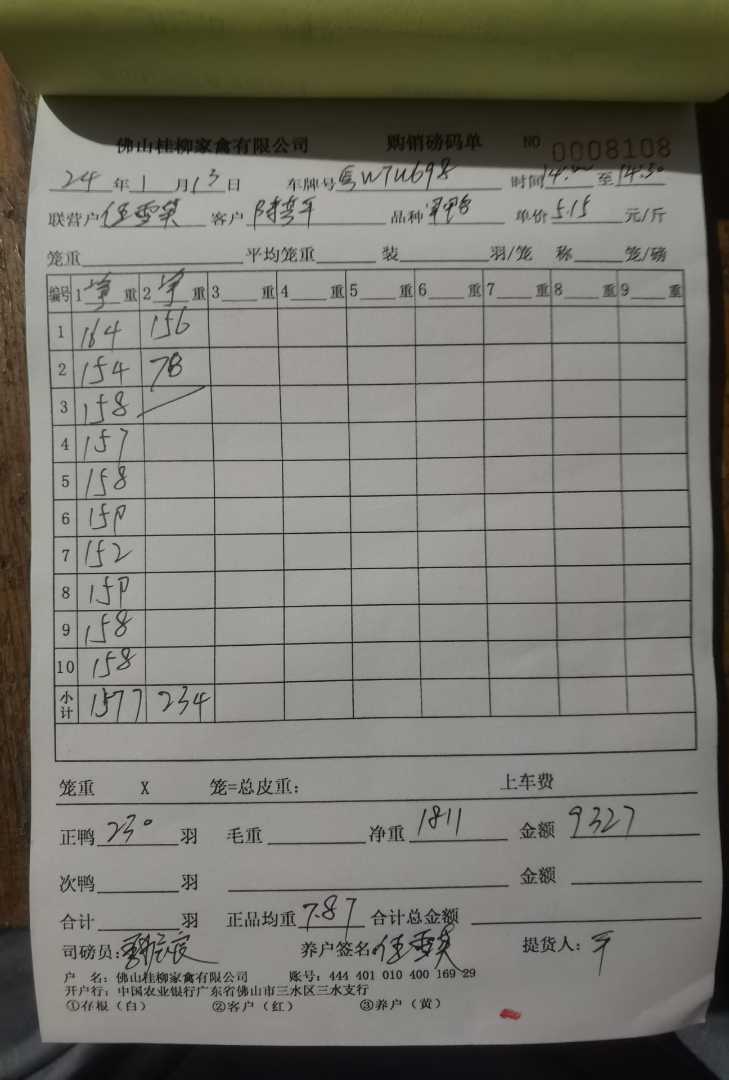 佛山桂柳家禽有限公司 购销磅码单 NO 0008108
24年1月13日 车牌号粤W7U698 时间14:00至14:30
联营户伍雪英 客户 品种 单价5.15元/斤
笼重 平均笼重 装 羽/笼 称 笼/磅
编号 1净重 2净重 3 重 4 重 5 重 6 重 7 重 8 重 9 重
1 164 156
2 154 78
3 158
4 157
5 158
6 159
7 152
8 159
9 158
10 158
小计 1577 234
笼重 X 笼=总皮重: 上车费
正鸭230羽 毛重 净重1811 金额9327
次鸭 羽 金额
合计 羽 正品均重7.87 合计总金额
司磅员: 养户签名伍雪英 提货人:平
户 名:佛山桂柳家禽有限公司 账号:444 401 010 400 169 29
开户行:中国农业银行广东省佛山市三水区三水支行
①存根(白) ②客户(红) ③养户(黄)